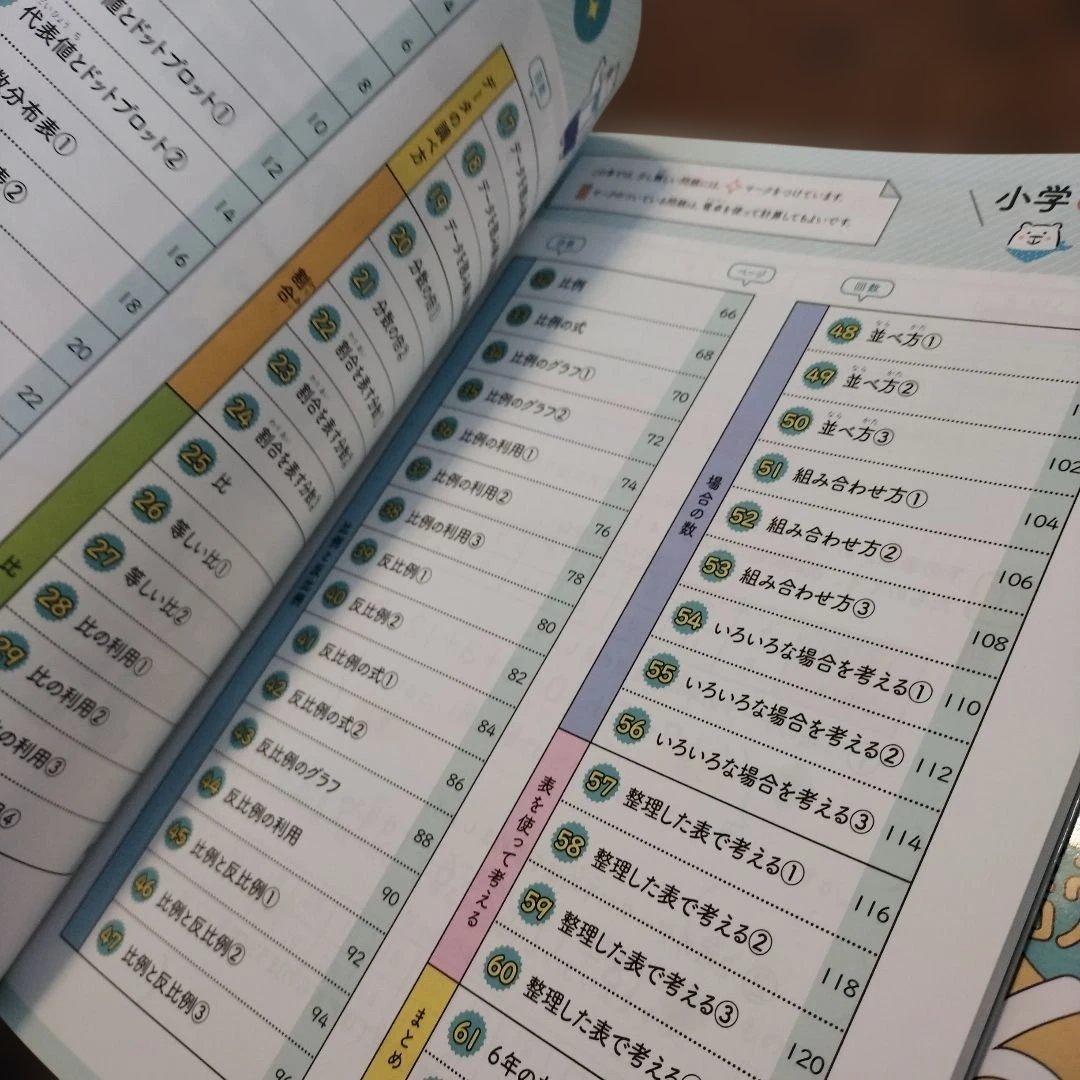 値とドットプロット①
代表値とドットプロット②
数分布表①
表②
4
6
8
10
12
14
16
18
20
22
データの調べ方
割合
比
回数
17
18
19
20
21
22
23
24
25 比
26 等しい比①
27 等しい比②
28 比の利用①
29 比の利用②
比の利用③
④
この本では、少し難しい問題には、マークをつけています。
マークのついている問題は、電卓を使って計算してもよいです。
小学
回数
ページ
比例 66
比例の式 68
比例のグラフ① 70
比例のグラフ② 72
36 比例の利用① 74
37 比例の利用② 76
38 比例の利用③ 78
39 反比例① 80
40 反比例② 82
41 反比例の式① 84
42 反比例の式② 86
43 反比例のグラフ 88
44 反比例の利用 90
45 比例と反比例① 92
46 比例と反比例② 94
47 比例と反比例③
回数
場合の数
48 並べ方①
49 並べ方②
50 並べ方③ 102
51 組み合わせ方① 104
52 組み合わせ方② 106
53 組み合わせ方③ 108
54 いろいろな場合を考える① 110
55 いろいろな場合を考える② 112
56 いろいろな場合を考える③ 114
表を使って考える
57 整理した表で考える① 116
58 整理した表で考える② 118
59 整理した表で考える③ 120
60 整理した表で考える
まとめ
61 6年の